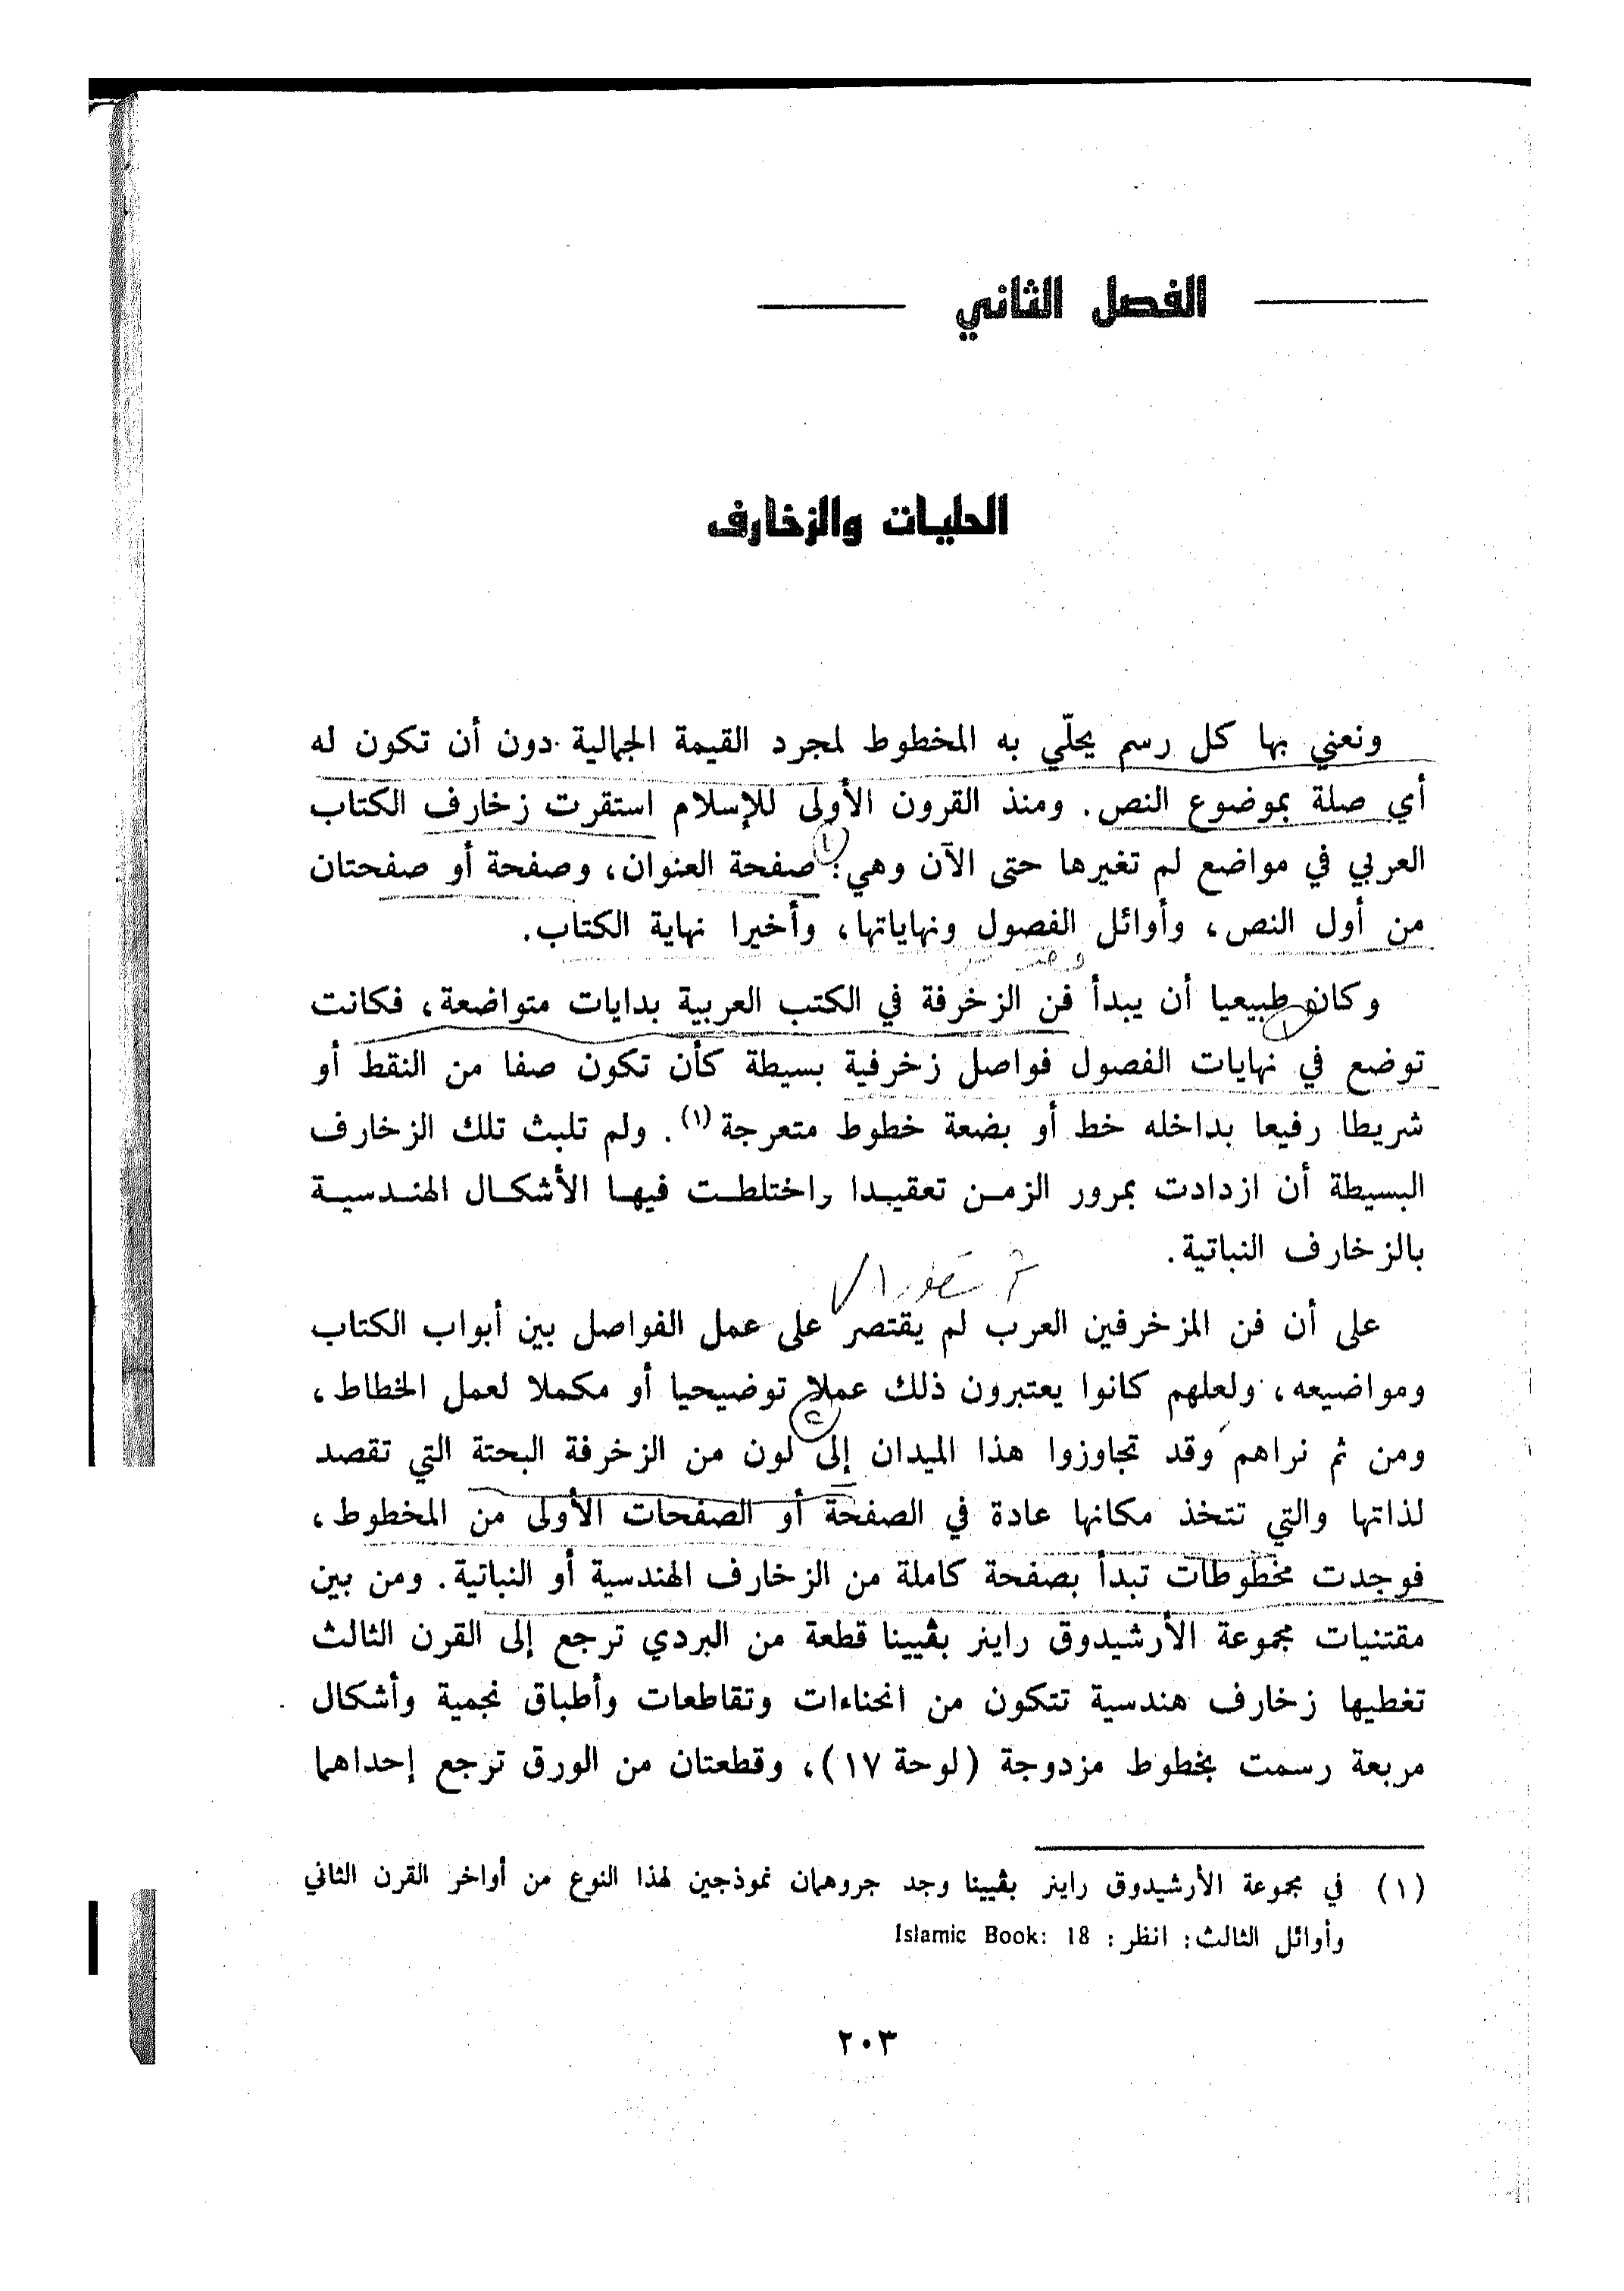 الفصل الثاني
الحليات والزخارف
ونعني بها كل رسم يحلّي به المخطوط لمجرد القيمة الجمالية دون أن تكون له
أي صلة بموضوع النص. ومنذ القرون الأولى للإسلام استقرت زخارف الكتاب
العربي في مواضع لم تغيرها حتى الآن وهي: صفحة العنوان، وصفحة أو صفحتان
من أول النص، وأوائل الفصول ونهاياتها، وأخيرا نهاية الكتاب.
وكان طبيعيا أن يبدأ فن الزخرفة في الكتب العربية بدايات متواضعة، فكانت
توضع في نهايات الفصول فواصل زخرفية بسيطة كأن تكون صفا من النقط أو
شريطا رفيعا بداخله خط أو بضعة خطوط متعرجة (١). ولم تلبث تلك الزخارف
البسيطة أن ازدادت بمرور الزمن تعقيدا واختلطت فيها الأشكال الهندسية
بالزخارف النباتية.
على أن فن المزخرفين العرب لم يقتصر على عمل الفواصل بين أبواب الكتاب
ومواضيعه، ولعلهم كانوا يعتبرون ذلك عملا توضيحيا أو مكملا لعمل الخطاط،
ومن ثم نراهم وقد تجاوزوا هذا الميدان إلى لون من الزخرفة البحتة التي تقصد
لذاتها والتي تتخذ مكانها عادة في الصفحة أو الصفحات الأولى من المخطوط،
فوجدت مخطوطات تبدأ بصفحة كاملة من الزخارف الهندسية أو النباتية. ومن بين
مقتنيات مجموعة الأرشيدوق راينر بڤيينا قطعة من البردي ترجع إلى القرن الثالث
تغطيها زخارف هندسية تتكون من انحناءات وتقاطعات وأطباق نجمية وأشكال
مربعة رسمت بخطوط مزدوجة (لوحة ١٧)، وقطعتان من الورق ترجع إحداهما
(١) في مجموعة الأرشيدوق راينر بڤيينا وجد جروهمان نموذجين لهذا النوع من أواخر القرن الثاني
وأوائل الثالث: انظر: Islamic Book: 18
٢٠٣